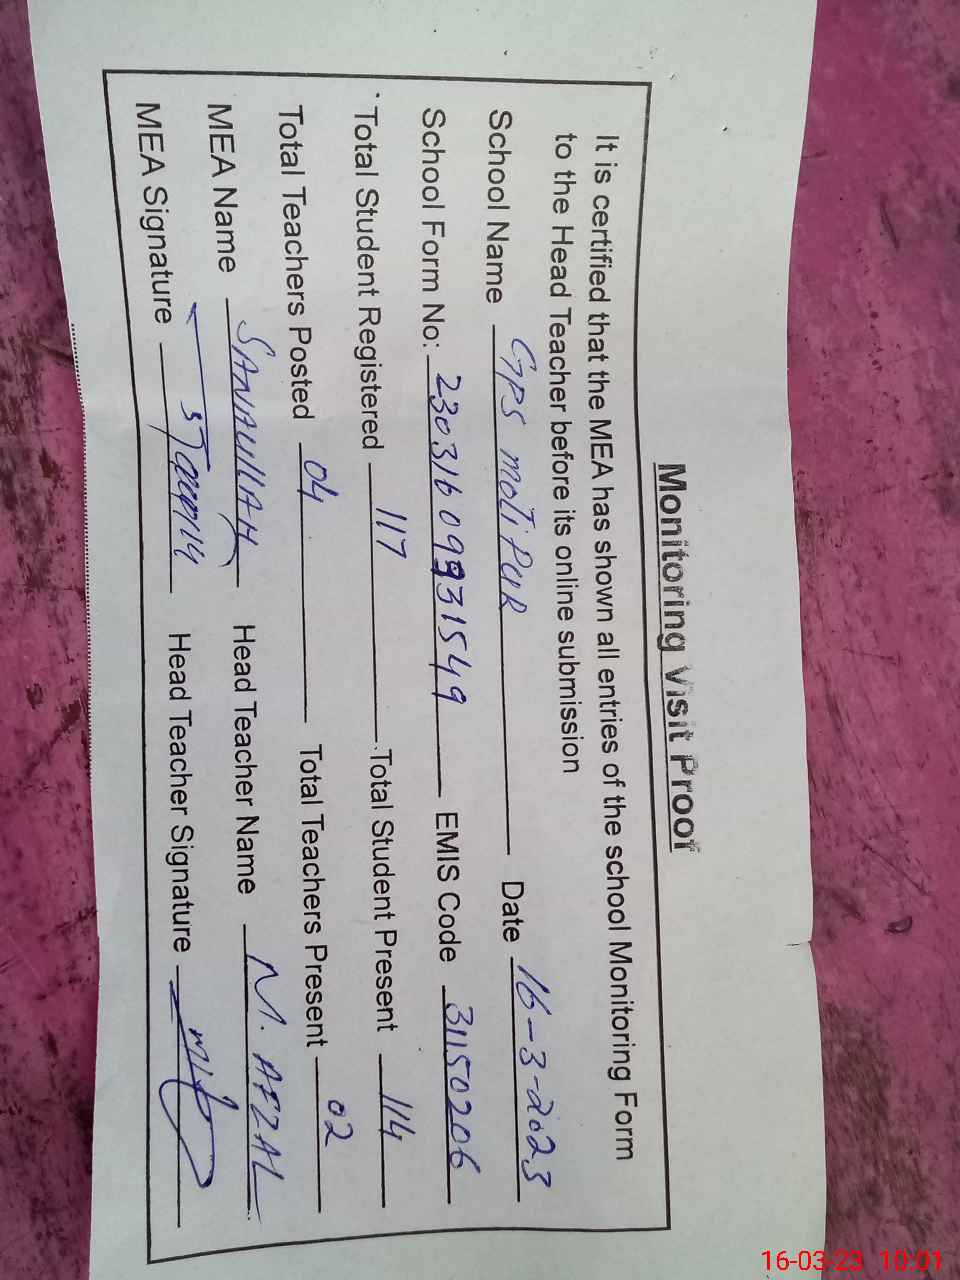 Monitoring Visit Proof
It is certified that the MEA has shown all entries of the school Monitoring Form
to the Head Teacher before its online submission
School Name GPS MOTi PUR Date 16-3-2023
School Form No: 23031609931549 EMIS Code 31150206
Total Student Registered 117 Total Student Present 114
Total Teachers Posted 04 Total Teachers Present 02
MEA Name SANAULLAH Head Teacher Name M. AFZAL
MEA Signature Head Teacher Signature
16-03-23 10:01